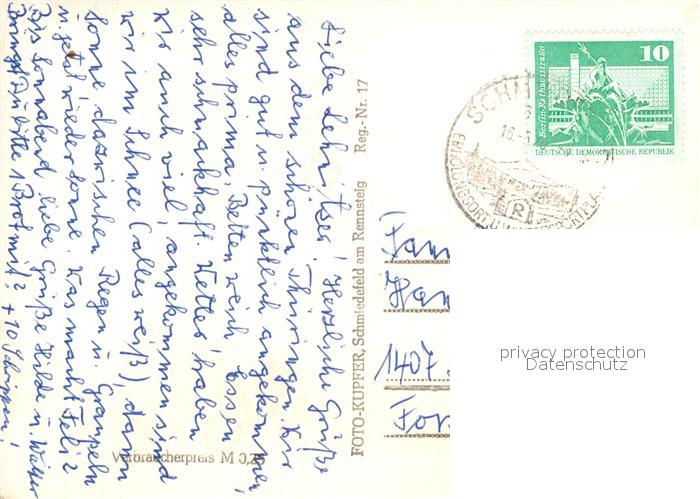 Liebe Lehnitzer! Herzliche Grüße
aus dem schönen Thüringen. Wir
sind gut u. pünktlich angekommen,
alles prima, Betten weich, Essen
sehr schmackhaft. Wetter haben
wir auch viel, angekommen sind
wir im Schnee (alles weiß), dann
Sonne, dazwischen Regen u. Graupeln
u. jetzt wieder Sonne. Was macht Felix?
Bis Sonnabend liebe Grüße Hilde u. Walter
Bringst Du bitte 1 Brot mit? + 10 Schrippen!
Verbraucherpreis M 0,25
FOTO-KUPFER, Schmiedefeld am Rennsteig Reg.-Nr. 17
10
Berlin-Rathausstraße
DEUTSCHE DEMOKRATISCHE REPUBLIK
SCHM
16.
ERHOLUNGSORT U.
R
Fam
Han
1407
For
privacy protection
Datenschutz